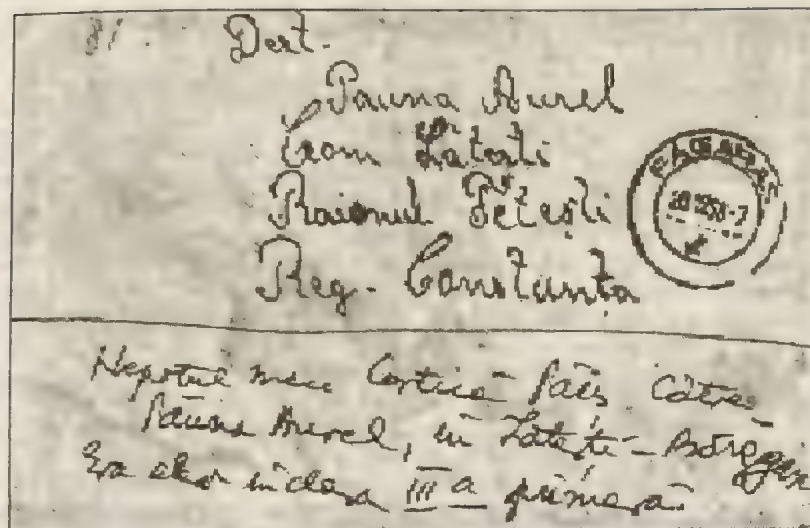 Dest.
Pauna Aurel
Com Latesti
Raionul Fetesti
Reg. Constanta
Nepotul meu Costică Păiș Către
Păuna Aurel, în Lătești - Bărăgan
Era elev în clasa III a primară